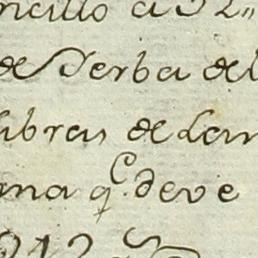 ncillo a 32"
de Yerba del
libras de Lan
ma q.e deve
212